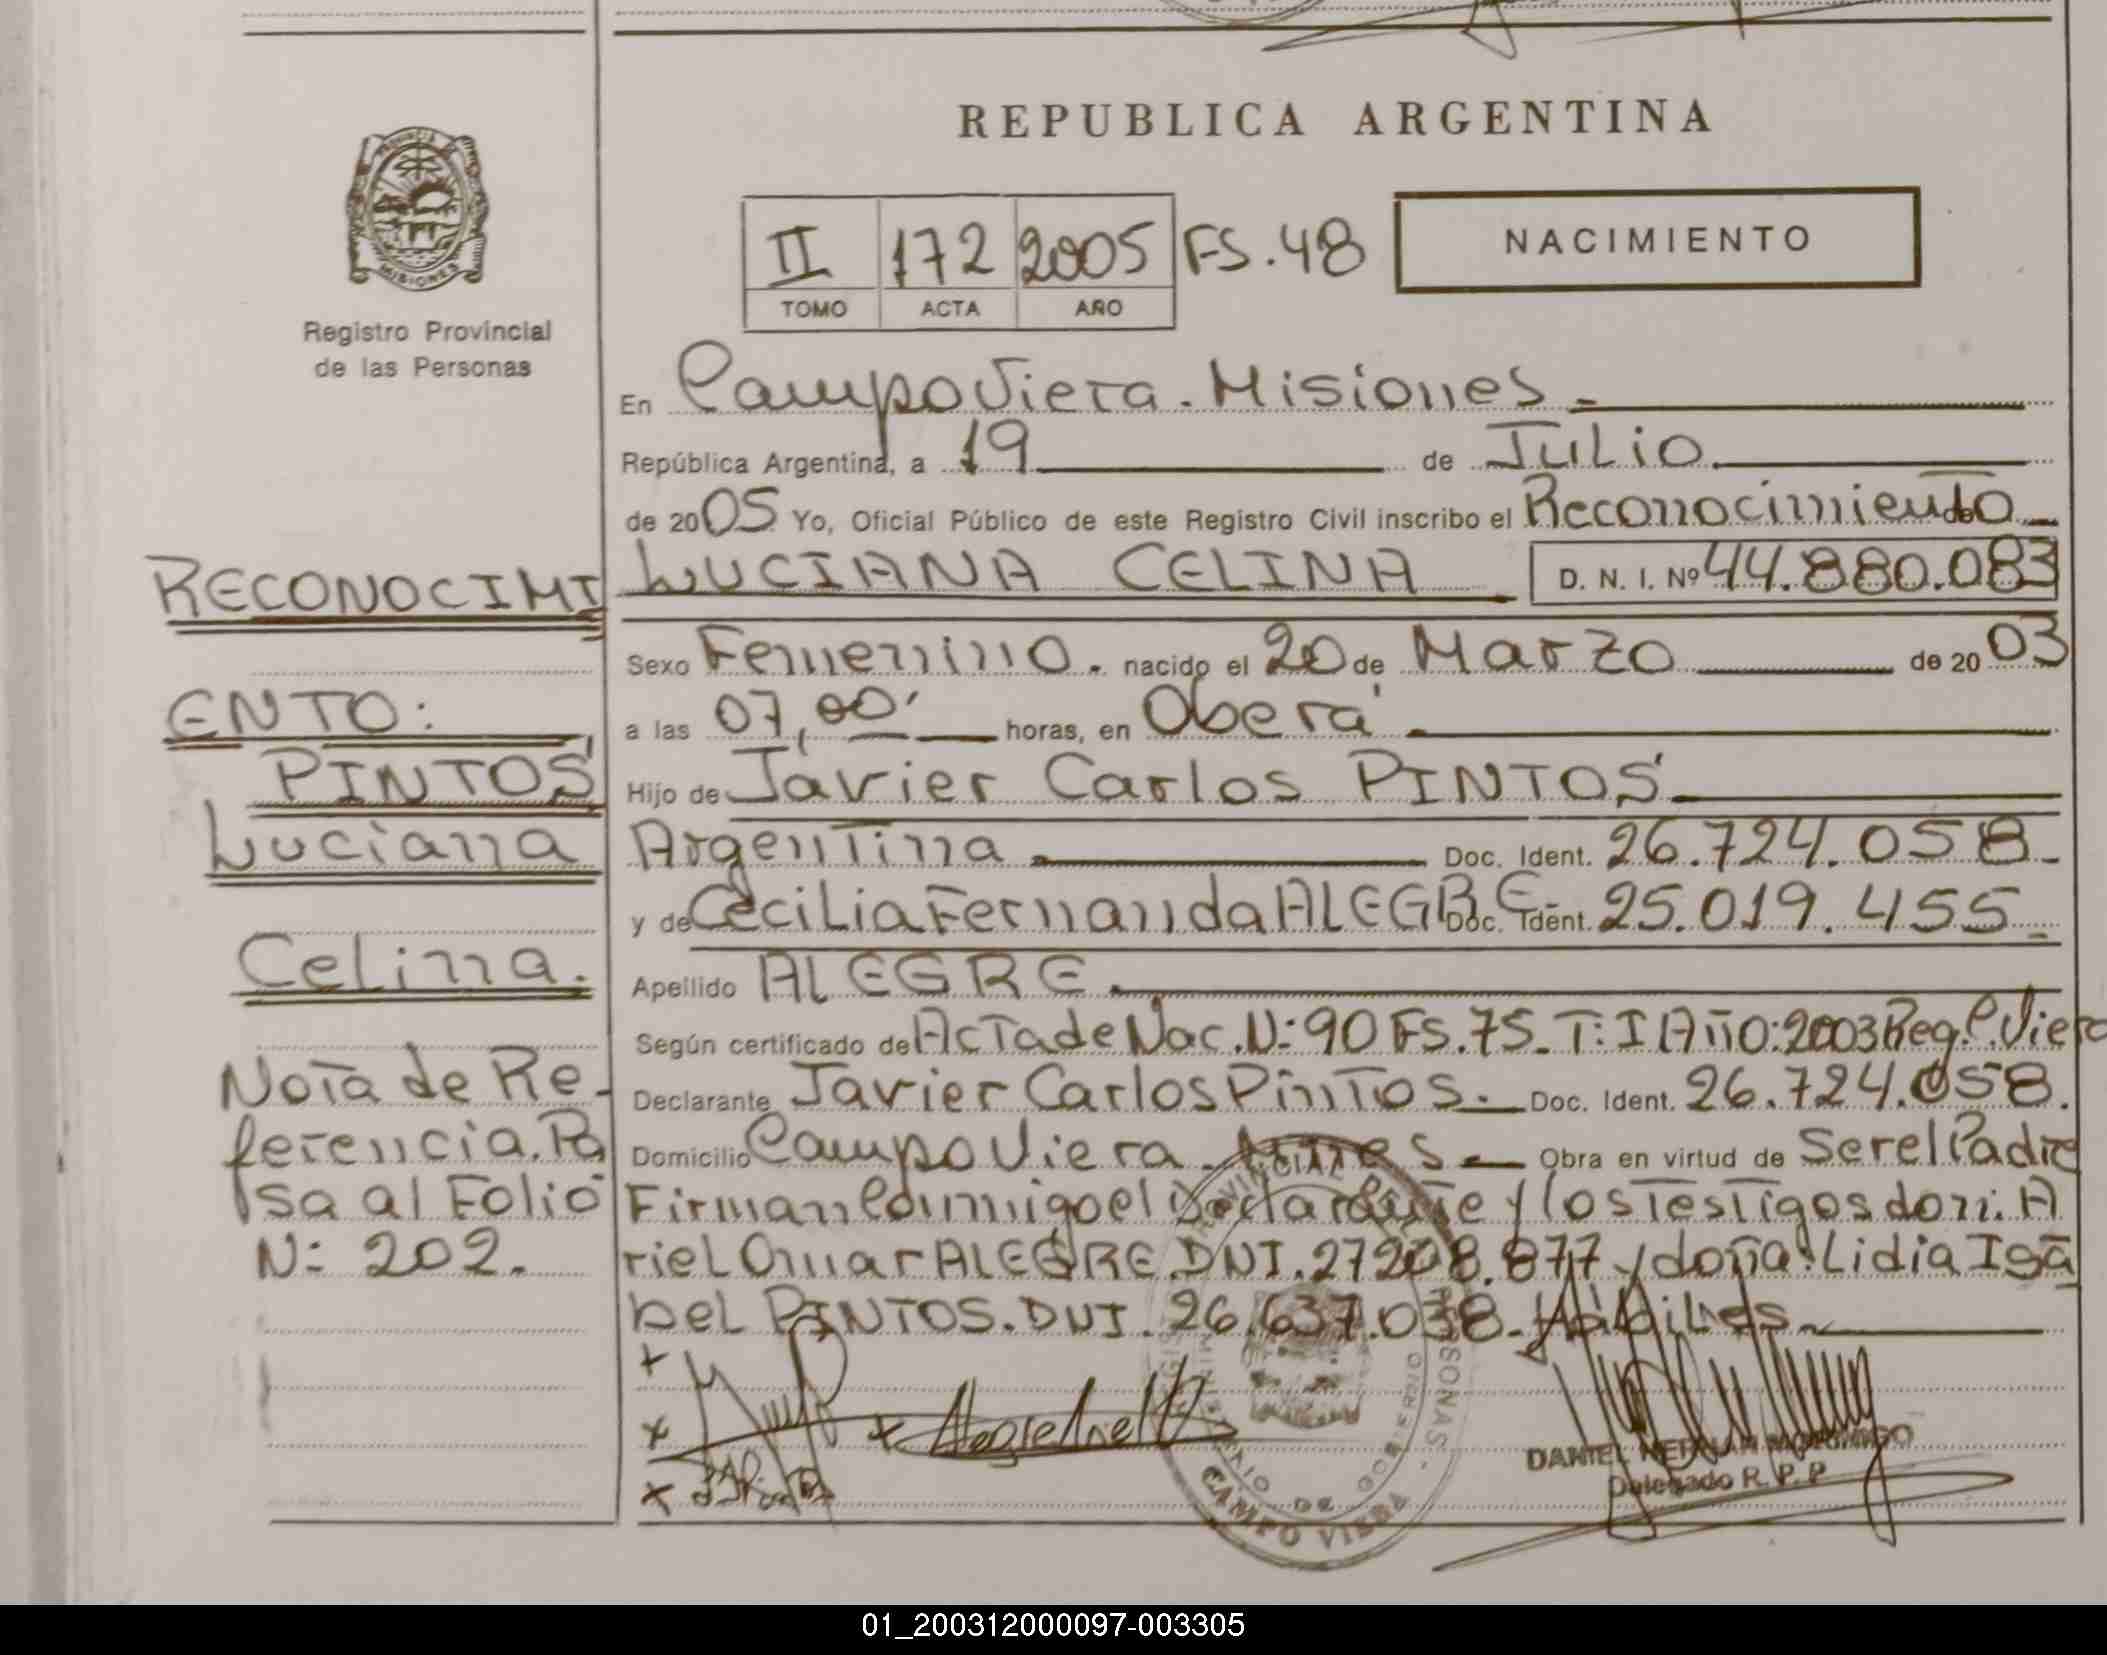 REPUBLICA ARGENTINA
PROVINCIA DE
MISIONES
Registro Provincial
de las Personas
II 172 2005 FS.48
TOMO ACTA AÑO
NACIMIENTO
En Campo Viera. Misiones.
República Argentina, a 19 de Julio.
de 2005 Yo, Oficial Público de este Registro Civil inscribo el Reconocimiento de
LUCIANA CELINA D. N. I. Nº 44.880.083
Sexo Femenino. nacido el 20 de Marzo de 2003
a las 07,00' horas, en Oberá
Hijo de Javier Carlos PINTOS
Argentina. Doc. Ident. 26.724.058.
y de Cecilia Fernanda ALEGRE. Doc. Ident. 25.019.455.
Apellido ALEGRE.
Según certificado de Acta de Nac. N: 90 FS. 75. T: I Año: 2003 Reg. C. Viera
Declarante Javier Carlos Pintos. Doc. Ident. 26.724.058.
Domicilio Campo Viera. Mnes. Obra en virtud de Ser el Padre
Firman Conmigo el Declarante y los Testigos don: A
riel Omar ALEGRE. DNI. 27208.877 y doña: Lidia Isa
bel PINTOS. DNI. 26.637.038. Hábiles.
RECONOCIMI
ENTO:
PINTOS
Luciana
Celina.
Nota de Re-
ferencia. Pa
sa al Folio
N: 202.
+
x + Alegre Ariel O
x
CAMPO VIERA
DANIEL HERNAN
Delegado R. P. P
01_200312000097-003305